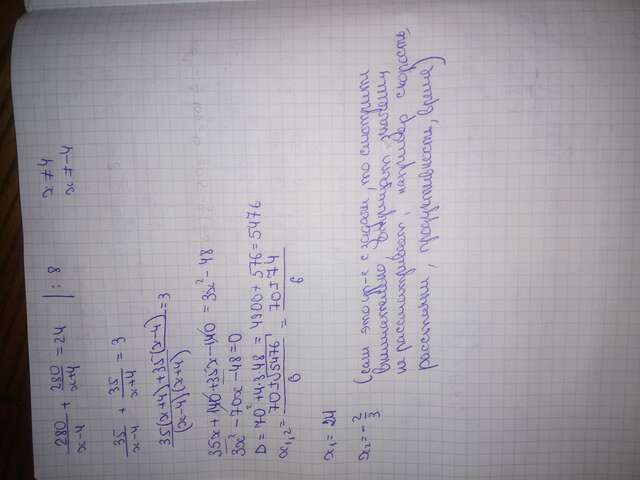 280/(x-4) + 280/(x+4) = 24 | : 8 x ≠ 4
x ≠ -4
35/(x-4) + 35/(x+4) = 3
(35(x+4) + 35(x-4))/((x-4)(x+4)) = 3
35x + 140 + 35x - 140 = 3x² - 48
3x² - 70x - 48 = 0
D = 70² + 4·3·48 = 4900 + 576 = 5476
x₁,₂ = (70 ± √5476)/6 = (70 ± 74)/6
x₁ = 24
x₂ = -2/3 (если это ур-е с задачи, то смотрите
внимательно отрицат значения
не рассматривают, например скорость,
расстояния, продуктивности, время)